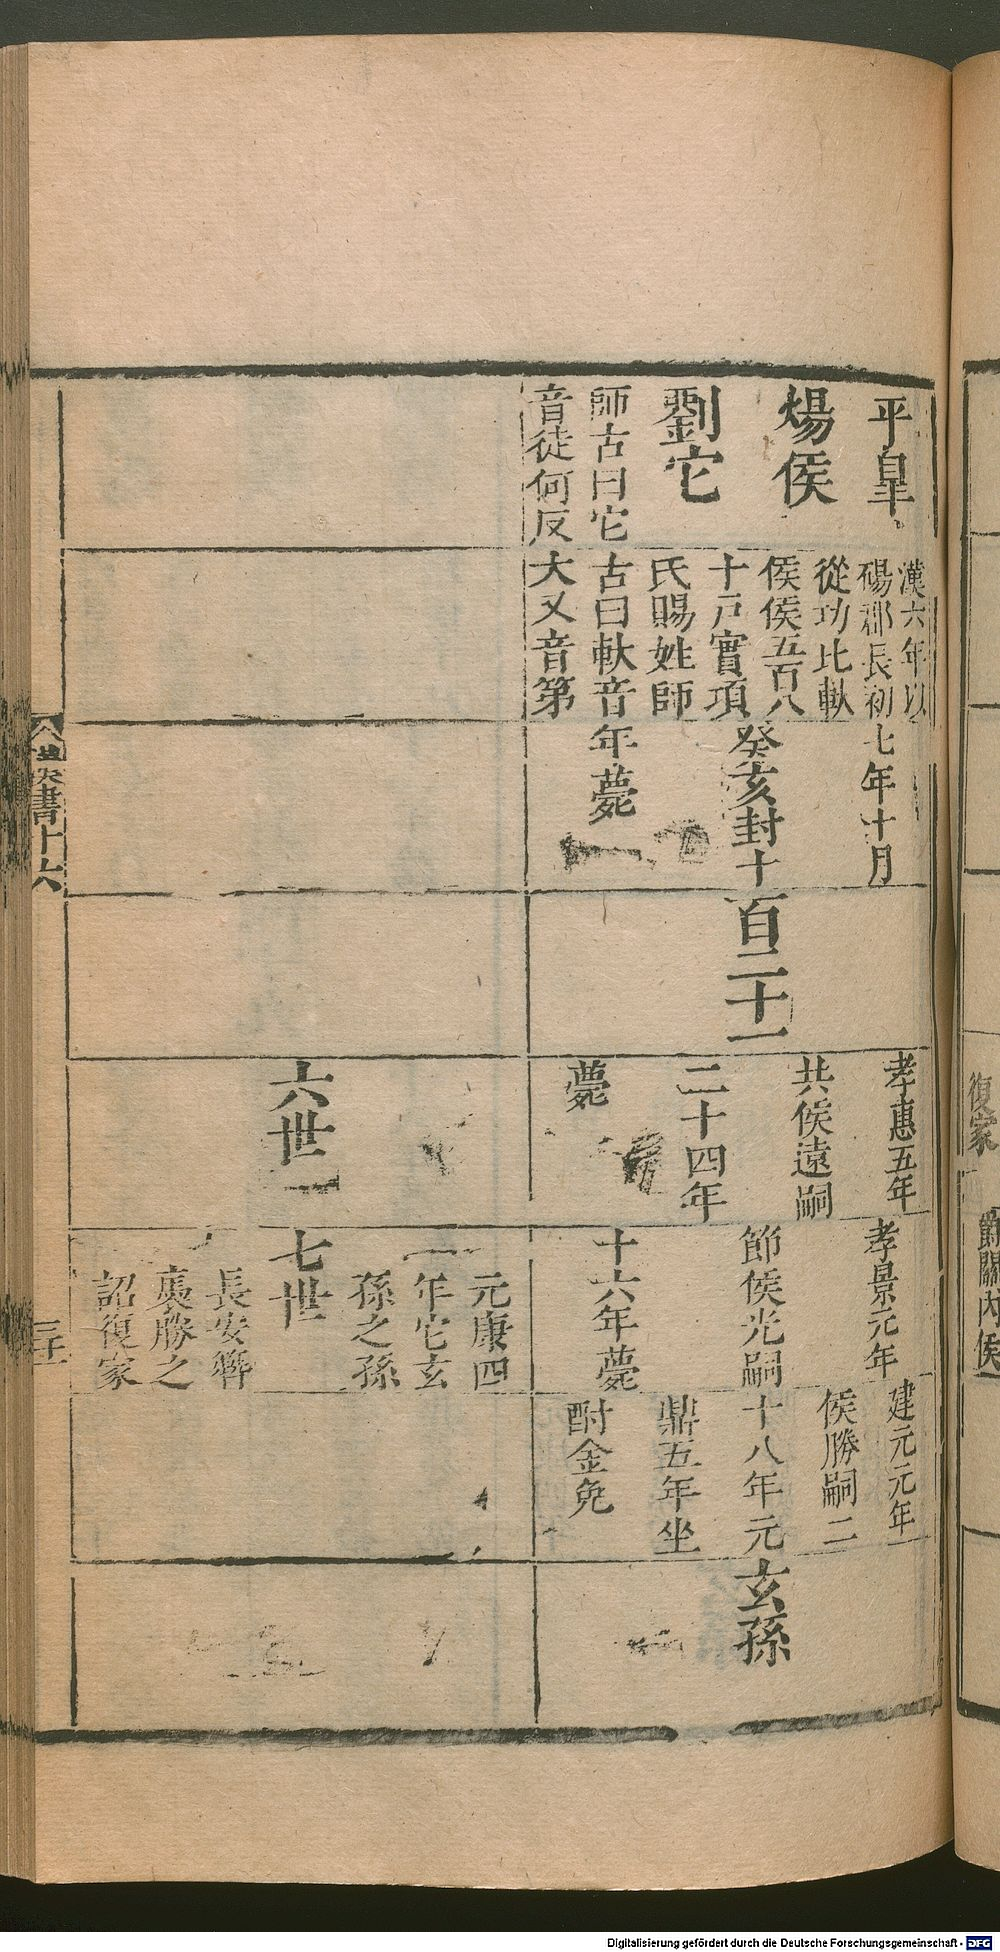 平皋
煬侯
劉它
師古曰它
音徒何反
漢六年以
碭郡長初
從功比軑
侯侯五百八
十戶實項
氏賜姓師
古曰軑音
大又音第
七年十月
癸亥封十
年薨
百二十一
孝惠五年
共侯遠嗣
二十四年
薨
孝景元年
節侯光嗣
十六年薨
建元元年
侯勝嗣二
十八年元
鼎五年坐
酎金免
玄孫
六世
七世
元康四
年它玄
孫之孫
長安簪
褭勝之
詔復家
書十六
復家
爵關內侯
Digitalisierung gefördert durch die Deutsche Forschungsgemeinschaft - DFG